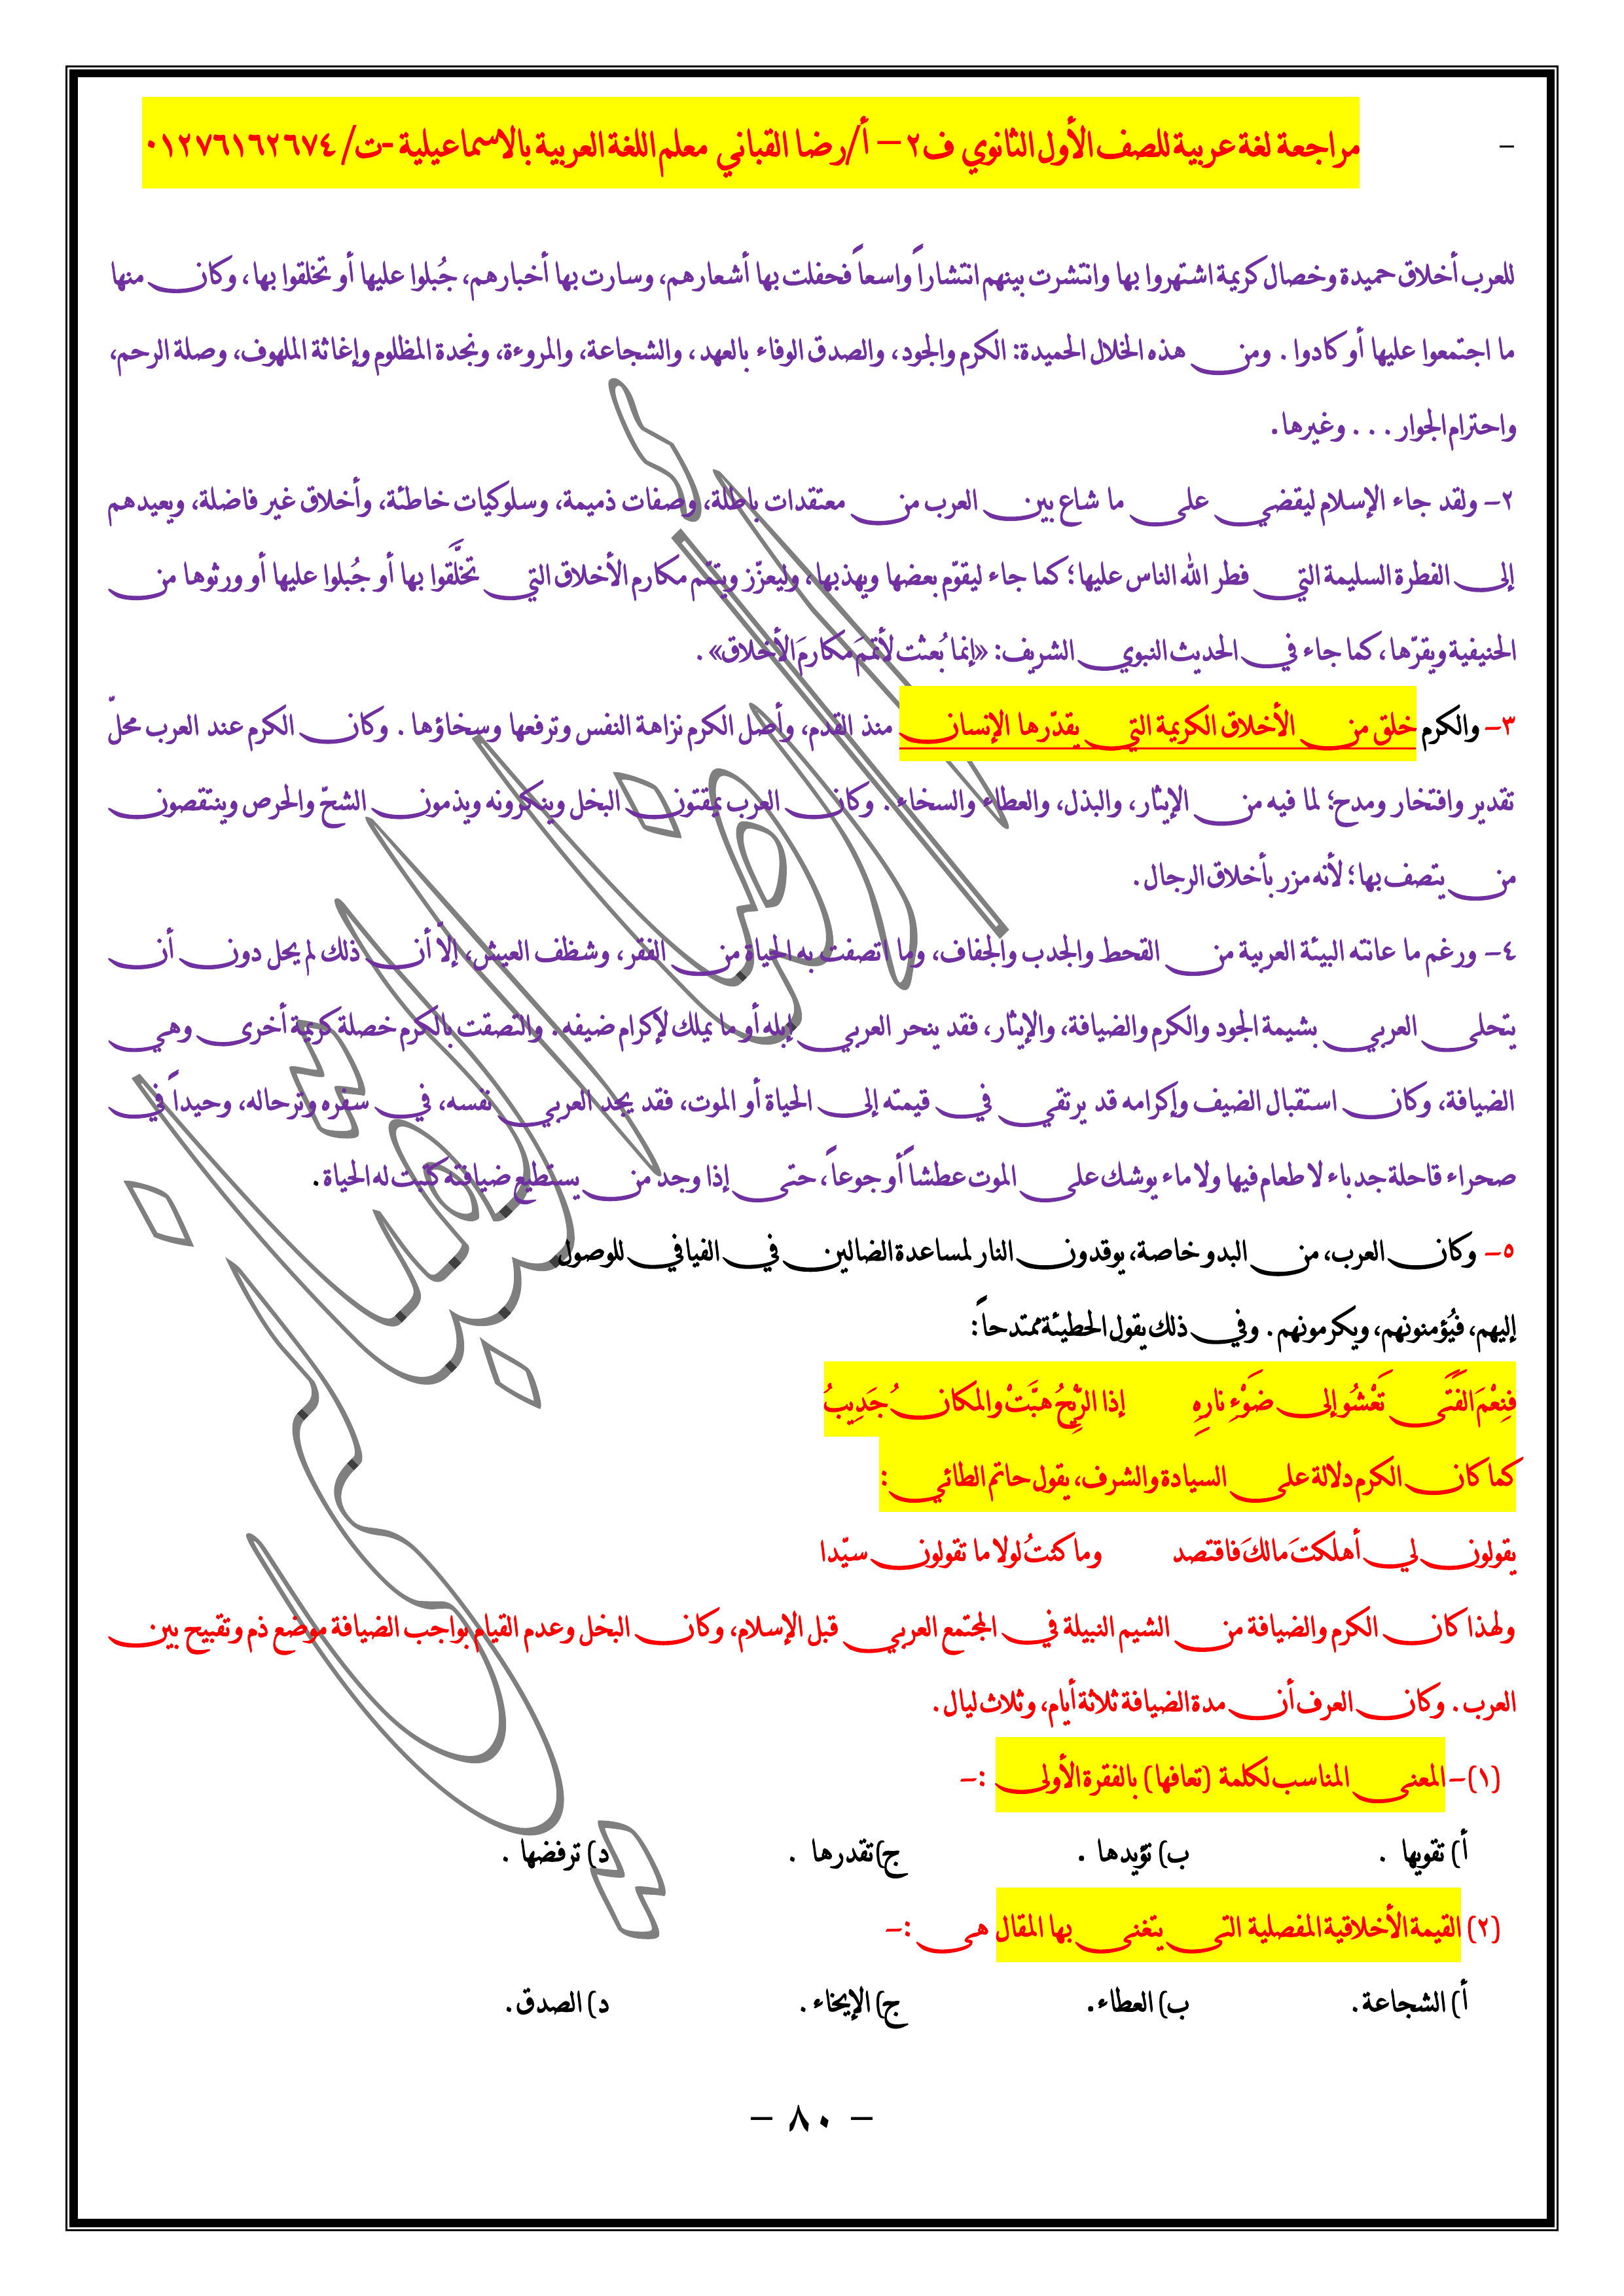 مراجعة لغة عربية للصف الأول الثانوي ف٢ – أ/رضا القباني معلم اللغة العربية بالاسماعيلية -ت/ ٠١٢٧٦١٦٢٦٧٤
-
للعرب أخلاق حميدة وخصال كريمة اشتهروا بها وانتشرت بينهم انتشاراً واسعاً فحفلت بها أشعارهم، وسارت بها أخبارهم، جُبلوا عليها أو تخلقوا بها، وكان منها
ما اجتمعوا عليها أو كادوا . ومن هذه الخلال الحميدة: الكرم والجود، والصدق الوفاء بالعهد، والشجاعة، والمروءة، ونجدة المظلوم وإغاثة الملهوف، وصلة الرحم،
واحترام الجوار . . . وغيرها .
٢- ولقد جاء الإسلام ليقضي على ما شاع بين العرب من معتقدات باطلة، وصفات ذميمة، وسلوكيات خاطئة، وأخلاق غير فاضلة، ويعيدهم
إلى الفطرة السليمة التي فطر الله الناس عليها؛ كما جاء ليقوّم بعضها ويهذبها، وليعزّز ويتمّم مكارم الأخلاق التي تخلَّقوا بها أو جُبلوا عليها أو ورثوها من
الحنيفية ويقرّها، كما جاء في الحديث النبوي الشريف: «إنما بُعثت لأتممَ مكارمَ الأخلاق» .
٣- والكرم خلق من الأخلاق الكريمة التي يقدّرها الإنسان منذ القدم، وأصل الكرم نزاهة النفس وترفعها وسخاؤها . وكان الكرم عند العرب محلّ
تقدير وافتخار ومدح؛ لما فيه من الإيثار، والبذل، والعطاء والسخاء . وكان العرب يمقتون البخل وينكرونه ويذمون الشحّ والحرص وينتقصون
من يتصف بها؛ لأنه مزر بأخلاق الرجال .
٤- ورغم ما عانته البيئة العربية من القحط والجدب والجفاف، وما اتصفت به الحياة من الفقر، وشظف العيش، إلاّ أن ذلك لم يحل دون أن
يتحلى العربي بشيمة الجود والكرم والضيافة، والإيثار، فقد ينحر العربي إبله أو ما يملك لإكرام ضيفه . والتصقت بالكرم خصلة كريمة أخرى وهي
الضيافة، وكان استقبال الضيف وإكرامه قد يرتقي في قيمته إلى الحياة أو الموت، فقد يجد العربي نفسه، في سفره وترحاله، وحيداً في
صحراء قاحلة جدباء لا طعام فيها ولا ماء يوشك على الموت عطشاً أو جوعاً، حتى إذا وجد من يستطيع ضيافته كتبت له الحياة .
٥- وكان العرب، من البدو خاصة، يوقدون النار لمساعدة الضالين في الفيافي للوصول
إليهم، فيُؤمنونهم، ويكرمونهم . وفي ذلك يقول الحطيئة ممتدحاً:
فنِعْمَ الفَتَى تَعْشُو إلى ضَوْءِ نارِهِ إذا الرِّيحُ هبَّتْ والمكانُ جَدِيبُ
كما كان الكرم دلالة على السيادة والشرف، يقول حاتم الطائي :
يقولون لي أهلكتَ مالكَ فاقتصد وما كنتُ لولا ما تقولون سيّدا
ولهذا كان الكرم والضيافة من الشيم النبيلة في المجتمع العربي قبل الإسلام، وكان البخل وعدم القيام بواجب الضيافة موضع ذم وتقبيح بين
العرب . وكان العرف أن مدة الضيافة ثلاثة أيام، وثلاث ليال .
(١)- المعنى المناسب لكلمة (تعافها) بالفقرة الأولى :-
أ) تقويها . ب) تؤيدها . ج) تقدرها . د) ترفضها .
(٢) القيمة الأخلاقية المفصلية التى يتغنى بها المقال هى :-
أ) الشجاعة . ب) العطاء . ج) الإيخاء . د) الصدق .
- ٨٠ -